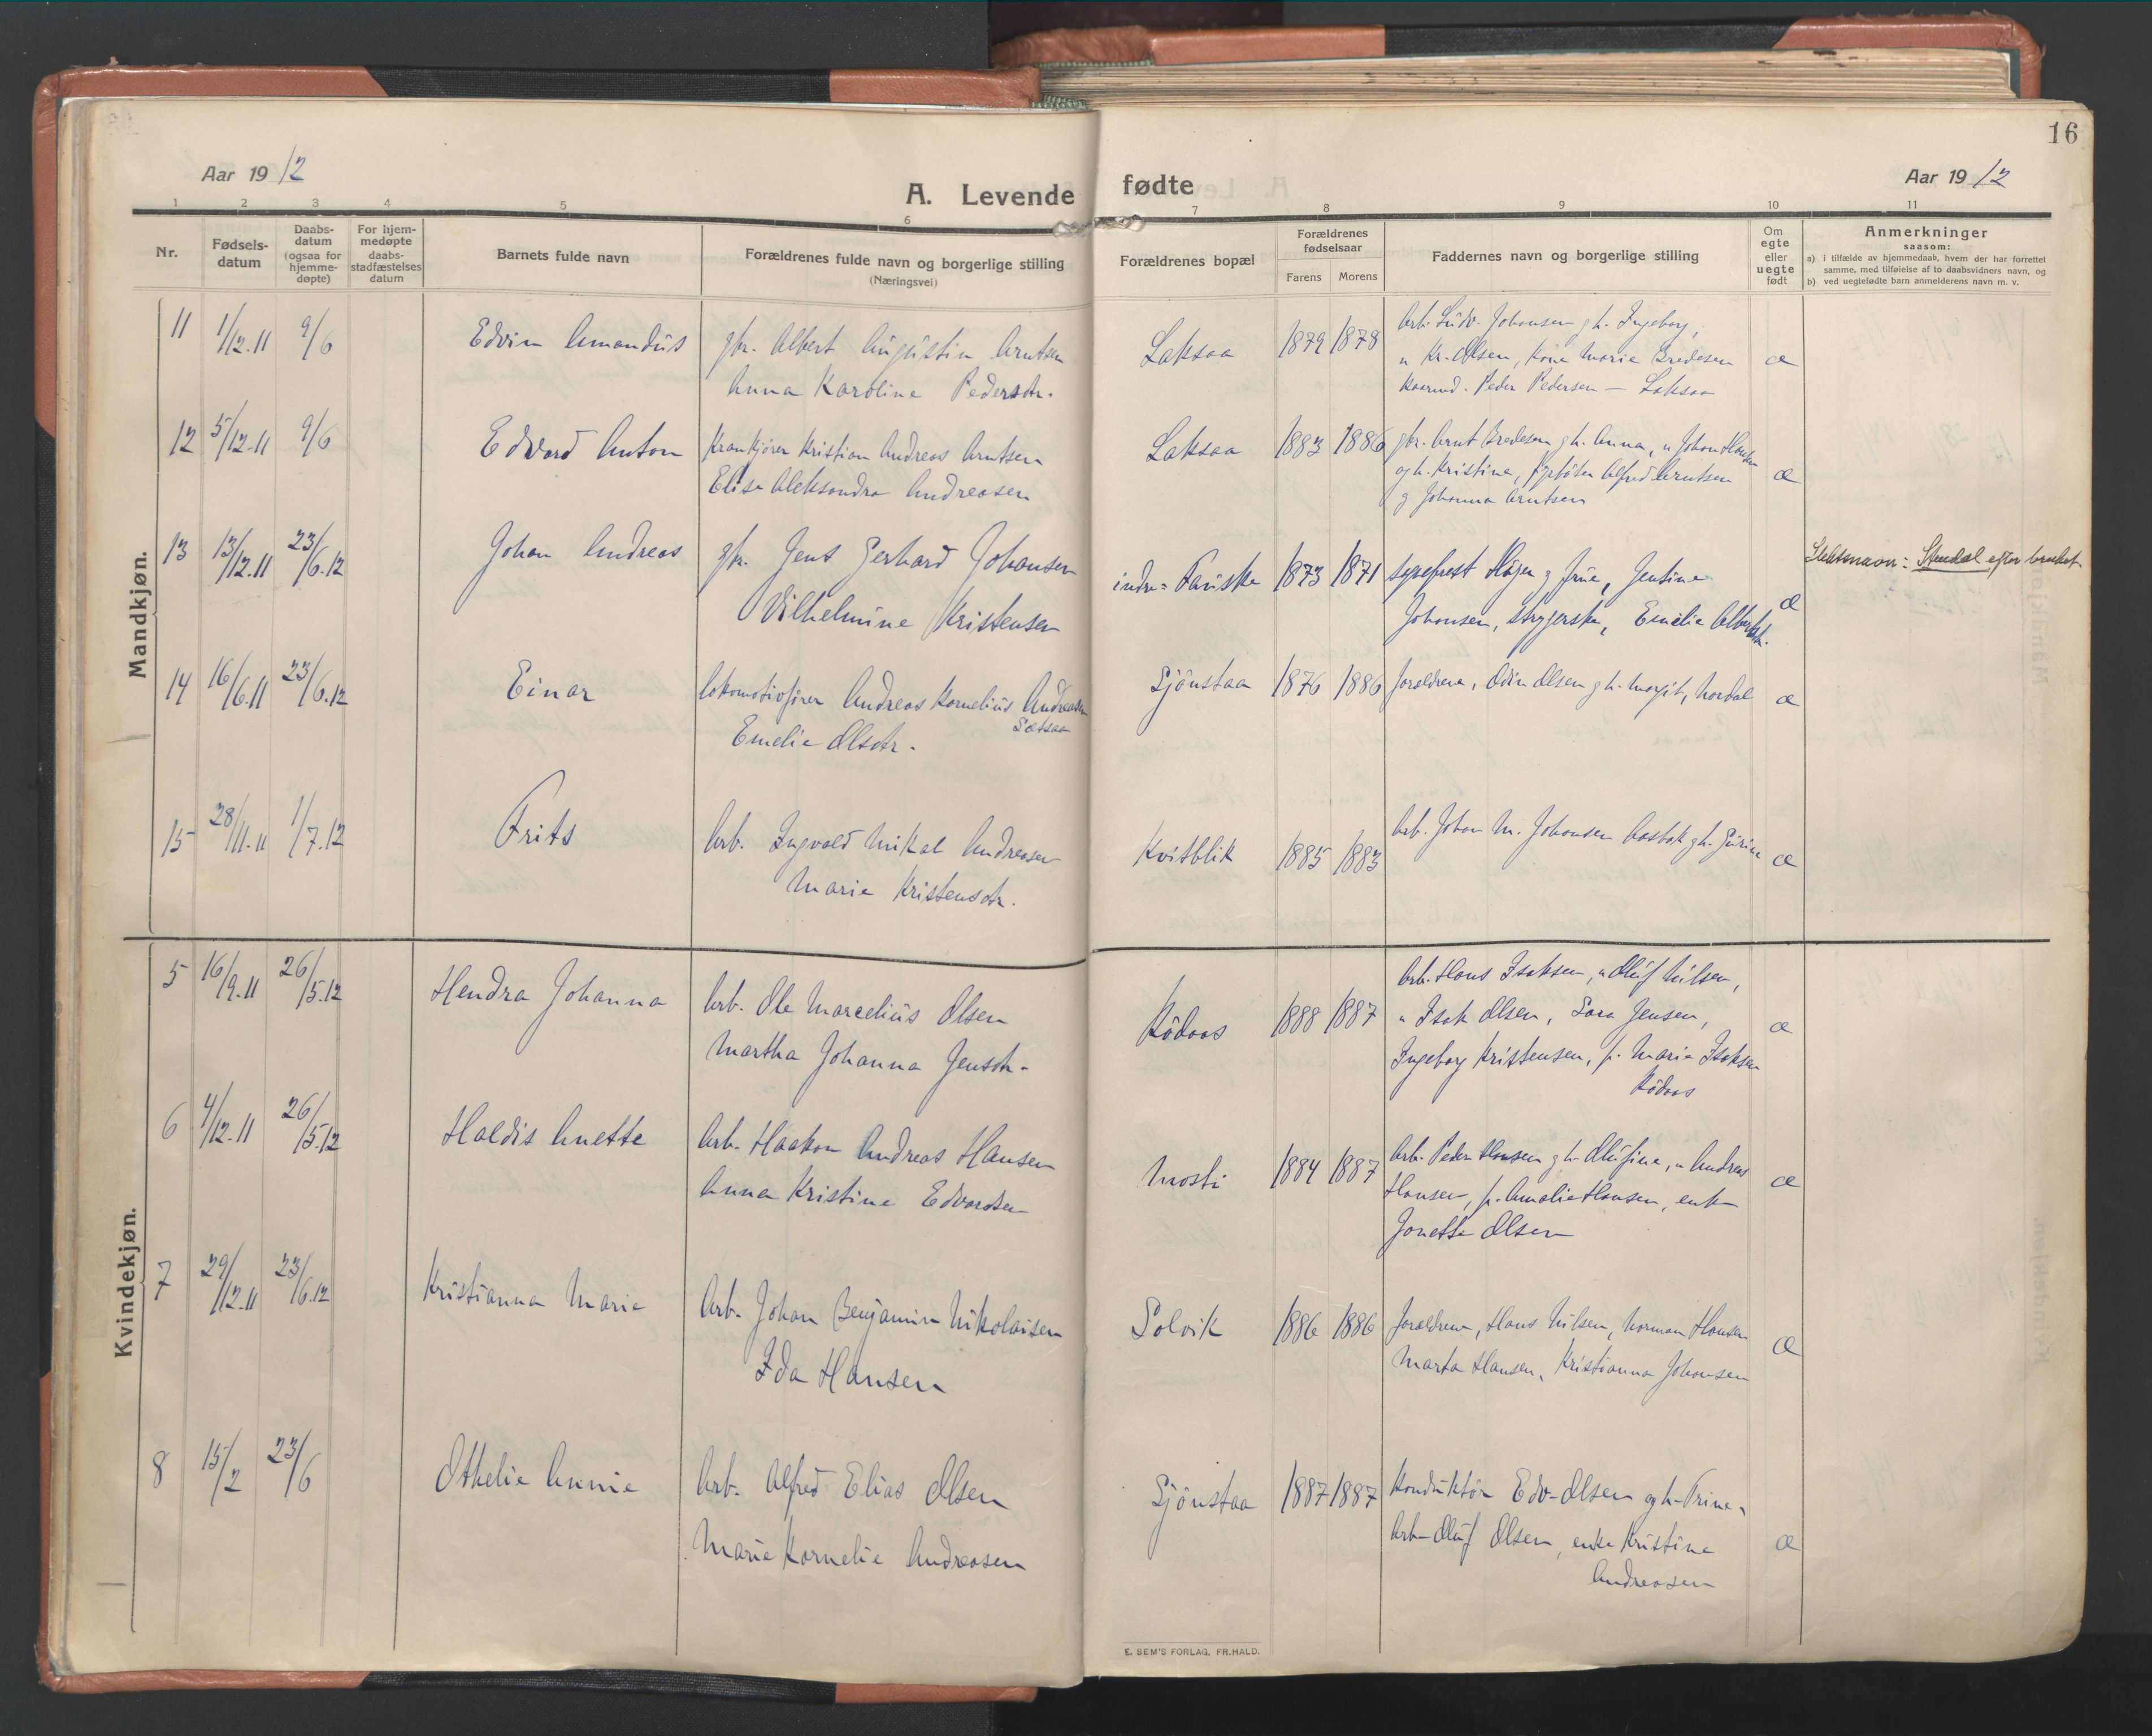 16
Aar 1912
A. Levende fødte
Aar 1912
1 2 3 4 5 6 7 8 9 10 11
Nr.
Fødsels-
datum
Daabs-
datum
(ogsaa for
hjemme-
døpte)
For hjem-
medøpte
daabs-
stadfæstelses
datum
Barnets fulde navn
Forældrenes fulde navn og borgerlige stilling
(Næringsvei)
Forældrenes bopæl
Forældrenes
fødselsaar
Farens Morens
Faddernes navn og borgerlige stilling
Om
egte
eller
uegte
født
Anmerkninger
saasom:
a) i tilfælde av hjemmedaab, hvem der har forrettet
samme, med tilføielse af to daabsvidners navn, og
b) ved uegtefødte barn anmelderens navn m. v.
Mandkjøn.
11 1/12.11 9/6 Edvin Amandus gbr. Albert Augustin Arntsen Laksaa 1879 1878 Arb. Ludv. Johansen g h. Ingeborg,
Anna Karoline Pedersdtr. " Kr. Olsen, Kone Marie Bredesen æ
Peder Pedersen — Laksaa
12 5/12.11 9/6 Edvard Anton Krankjører Kristian Andreas Arntsen Laksaa 1883 1886 gbr. Arnt Bredesen g h. Anna, " Johan Hansen
Elise Aleksandra Andreasen og h. Kristine, Alfred Arntsen æ
g Johanna Arntsen
13 13/12.11 23/6.12 Johan Andreas gbr. Jens Gerhard Johansen indre Fauske 1873 1871 sogneprest Hagen g frue, Jentine
Vilhelmine Kristensen Johansen, strygerske, Emelie Albertsdtr. æ
Slektsnavn: Stendal efter bruket.
14 16/6.11 23/6.12 Einar Lokomotivfører Andreas Kornelius Andreasen Sjönstaa 1876 1886 forældrene, Odin Olsen g h. Margit, æ
Setsaa
Emelie Olsdtr.
15 28/11.11 1/7.12 Frits Arb. Ingvald Mikal Andreasen Kvitblik 1885 1883 Arb. Johan M. Johansen g h. æ
Marie Kristensdtr.
Kvindekjøn.
5 16/9.11 26/5.12 Hendra Johanna Arb. Ole Marcelius Olsen Rödaas 1888 1887 Arb. Hans Isaksen, " Oluf Nilsen,
Martha Johanna Jensdtr. " Isak Olsen, Sara Jensen, æ
Ingeborg Kristensen, p. Marie Isaksen
Rödaas
6 4/12.11 26/5.12 Haldis Anette Arb. Haakon Andreas Hansen Mosti 1884 1887 Arb. Peder Hansen g h. Olufine, " Andreas
Anna Kristine Edvardsen Hansen, p. Amalie Hansen, enke æ
Jonette Olsen
7 29/12.11 23/6.12 Kristianna Marie Arb. Johan Benjamin Nikolaisen Solvik 1886 1886 forældrene, Hans Nilsen, Norman Hansen
Ida Hansen Marta Hansen, Kristianna Johansen æ
8 15/2 23/6 Othelie Annie Arb. Alfred Elias Olsen Sjönstaa 1887 1887 Konduktör Edv. Olsen og h. Trine,
Marie Kornelie Andreasen Arb. Oluf Olsen, enke Kristine æ
Andreasen
E. SEM'S FORLAG, FR.HALD.